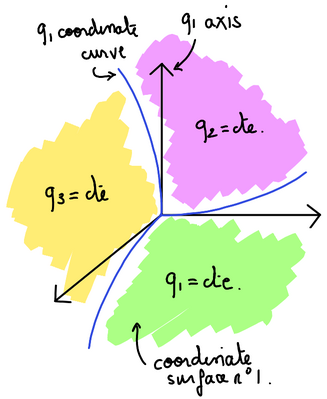 q₁ coordinate
curve
q₁ axis
q₂ = cte.
q₃ = cte
q₁ = cte.
coordinate
surface n°1.